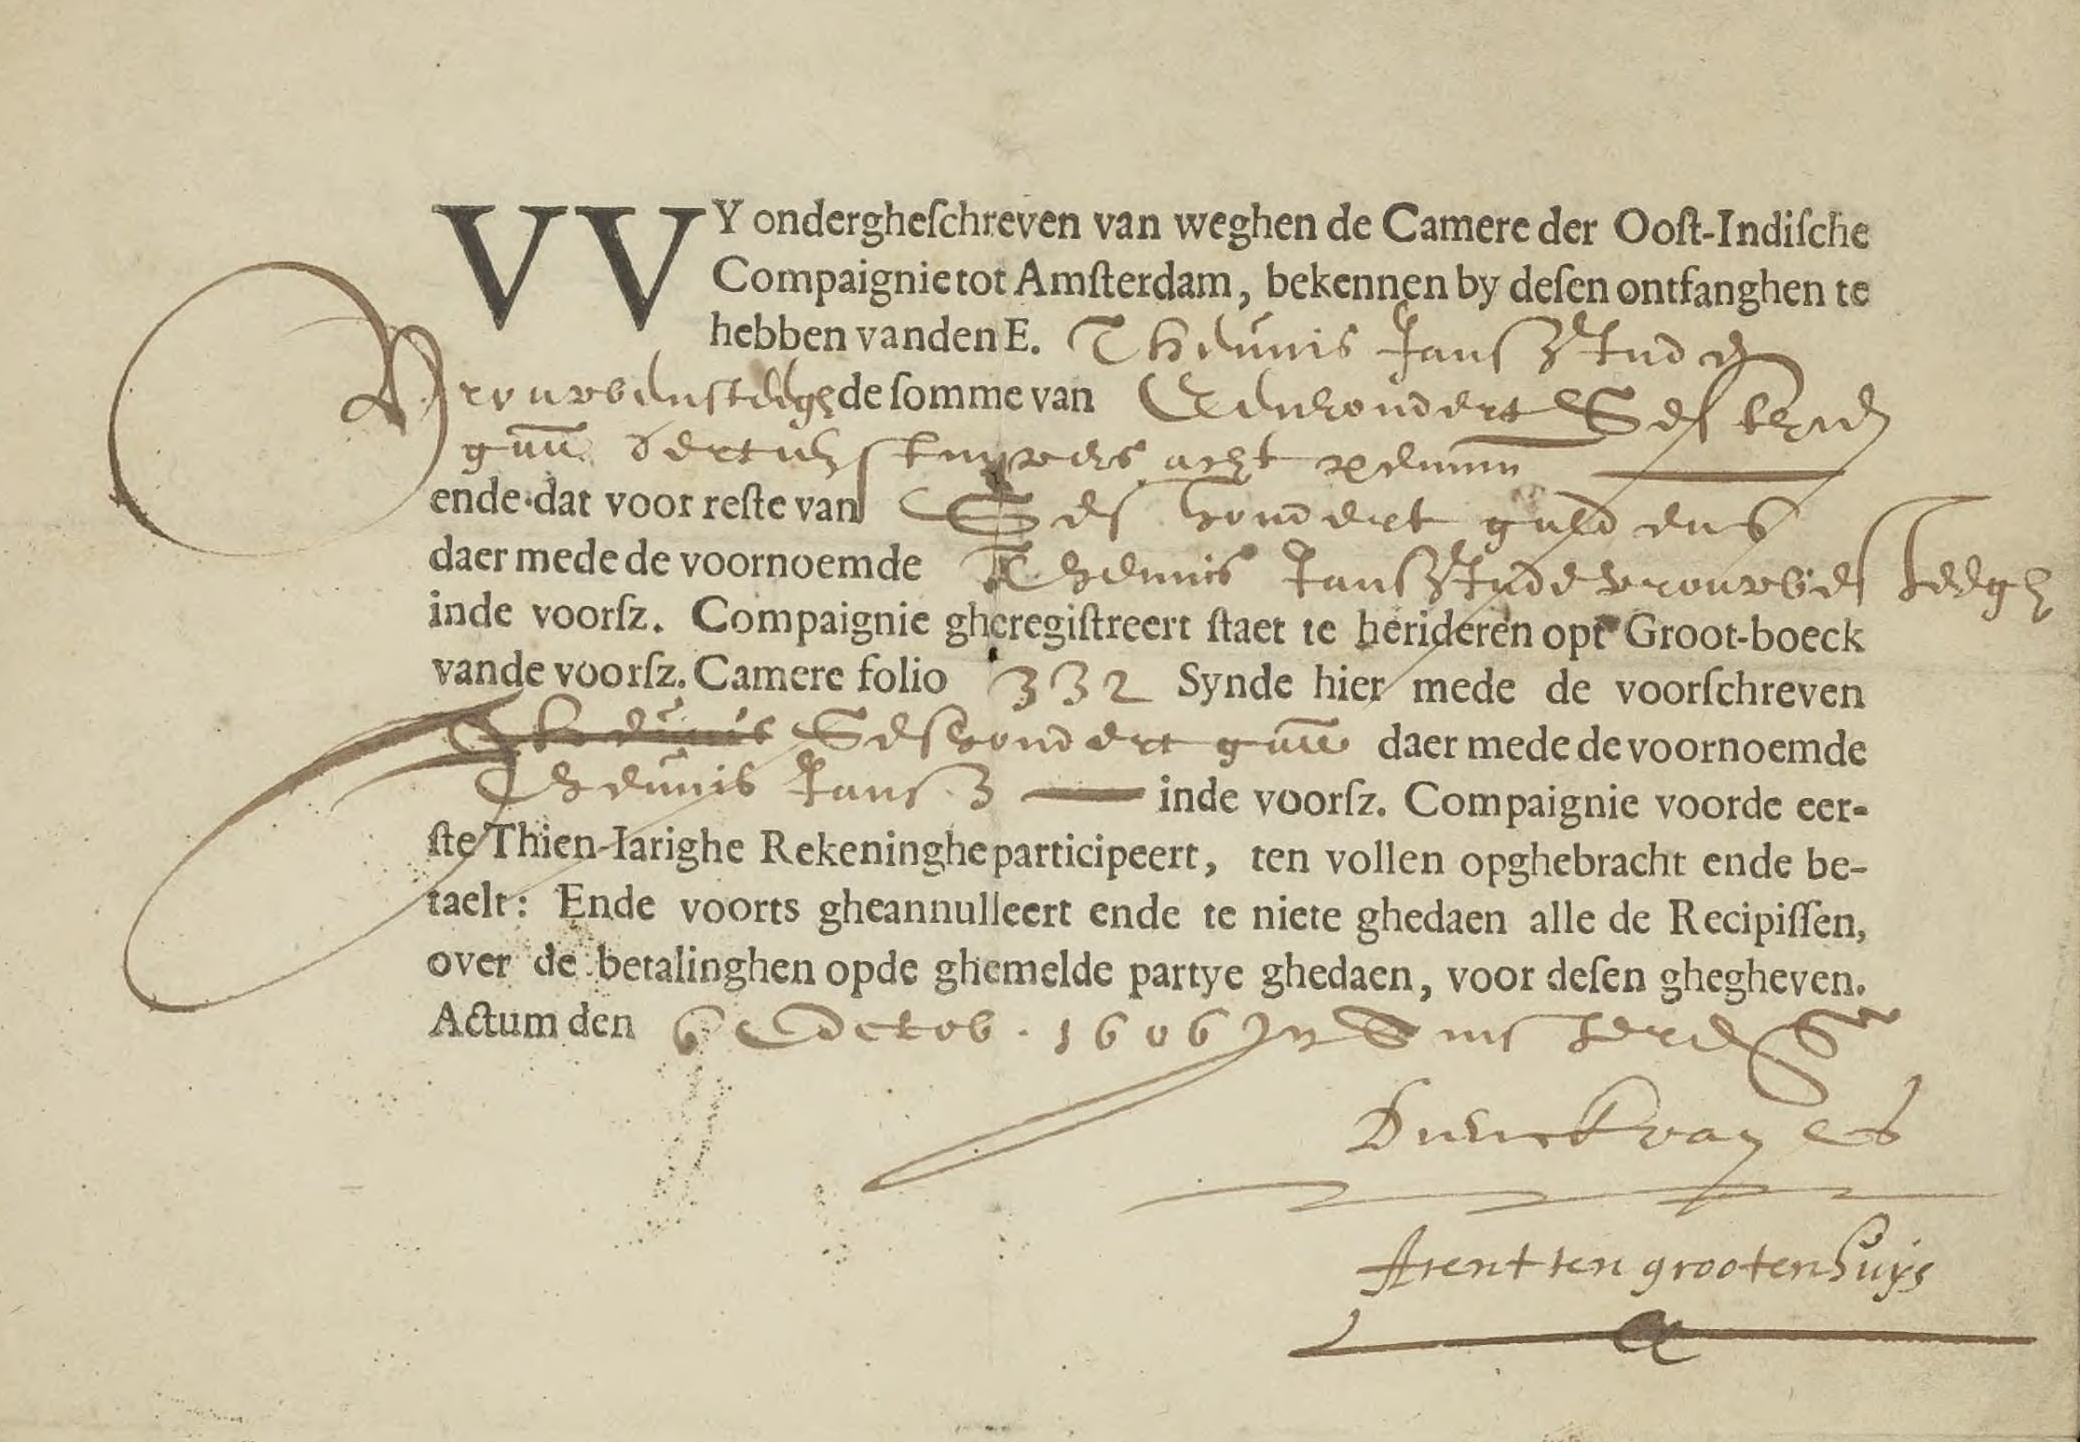 VVY ondergheſchreven van weghen de Camere der Ooſt-Indiſche
Compaignie tot Amſterdam, bekennen by deſen ontfanghen te
hebben vanden E. Theunis Janſz Jnd
vrouwensteegh de ſomme van Eenhondert Ses
guu dertich stuyvers acht penun
ende dat voor reſte van Ses hondert guldens
daer mede de voornoemde Theunis Janſz Jnde vrouwesteegh
inde voorſz. Compaignie gheregiſtreert ſtaet te herideren opt Groot-boeck
vande voorſz. Camere folio 332 Synde hier mede de voorſchreven
Theunis Seshondert guu daer mede de voornoemde
Theunis Jansz inde voorſz. Compaignie voorde eer-
ſte Thien-Iarighe Rekeninghe participeert, ten vollen opghebracht ende be-
taelt: Ende voorts gheannulleert ende te niete ghedaen alle de Recipiſſen,
over de betalinghen opde ghemelde partye ghedaen, voor deſen ghegheven.
Actum den 6 Octob. 1606 Jn Amsterd
Arent ten grootenhuys